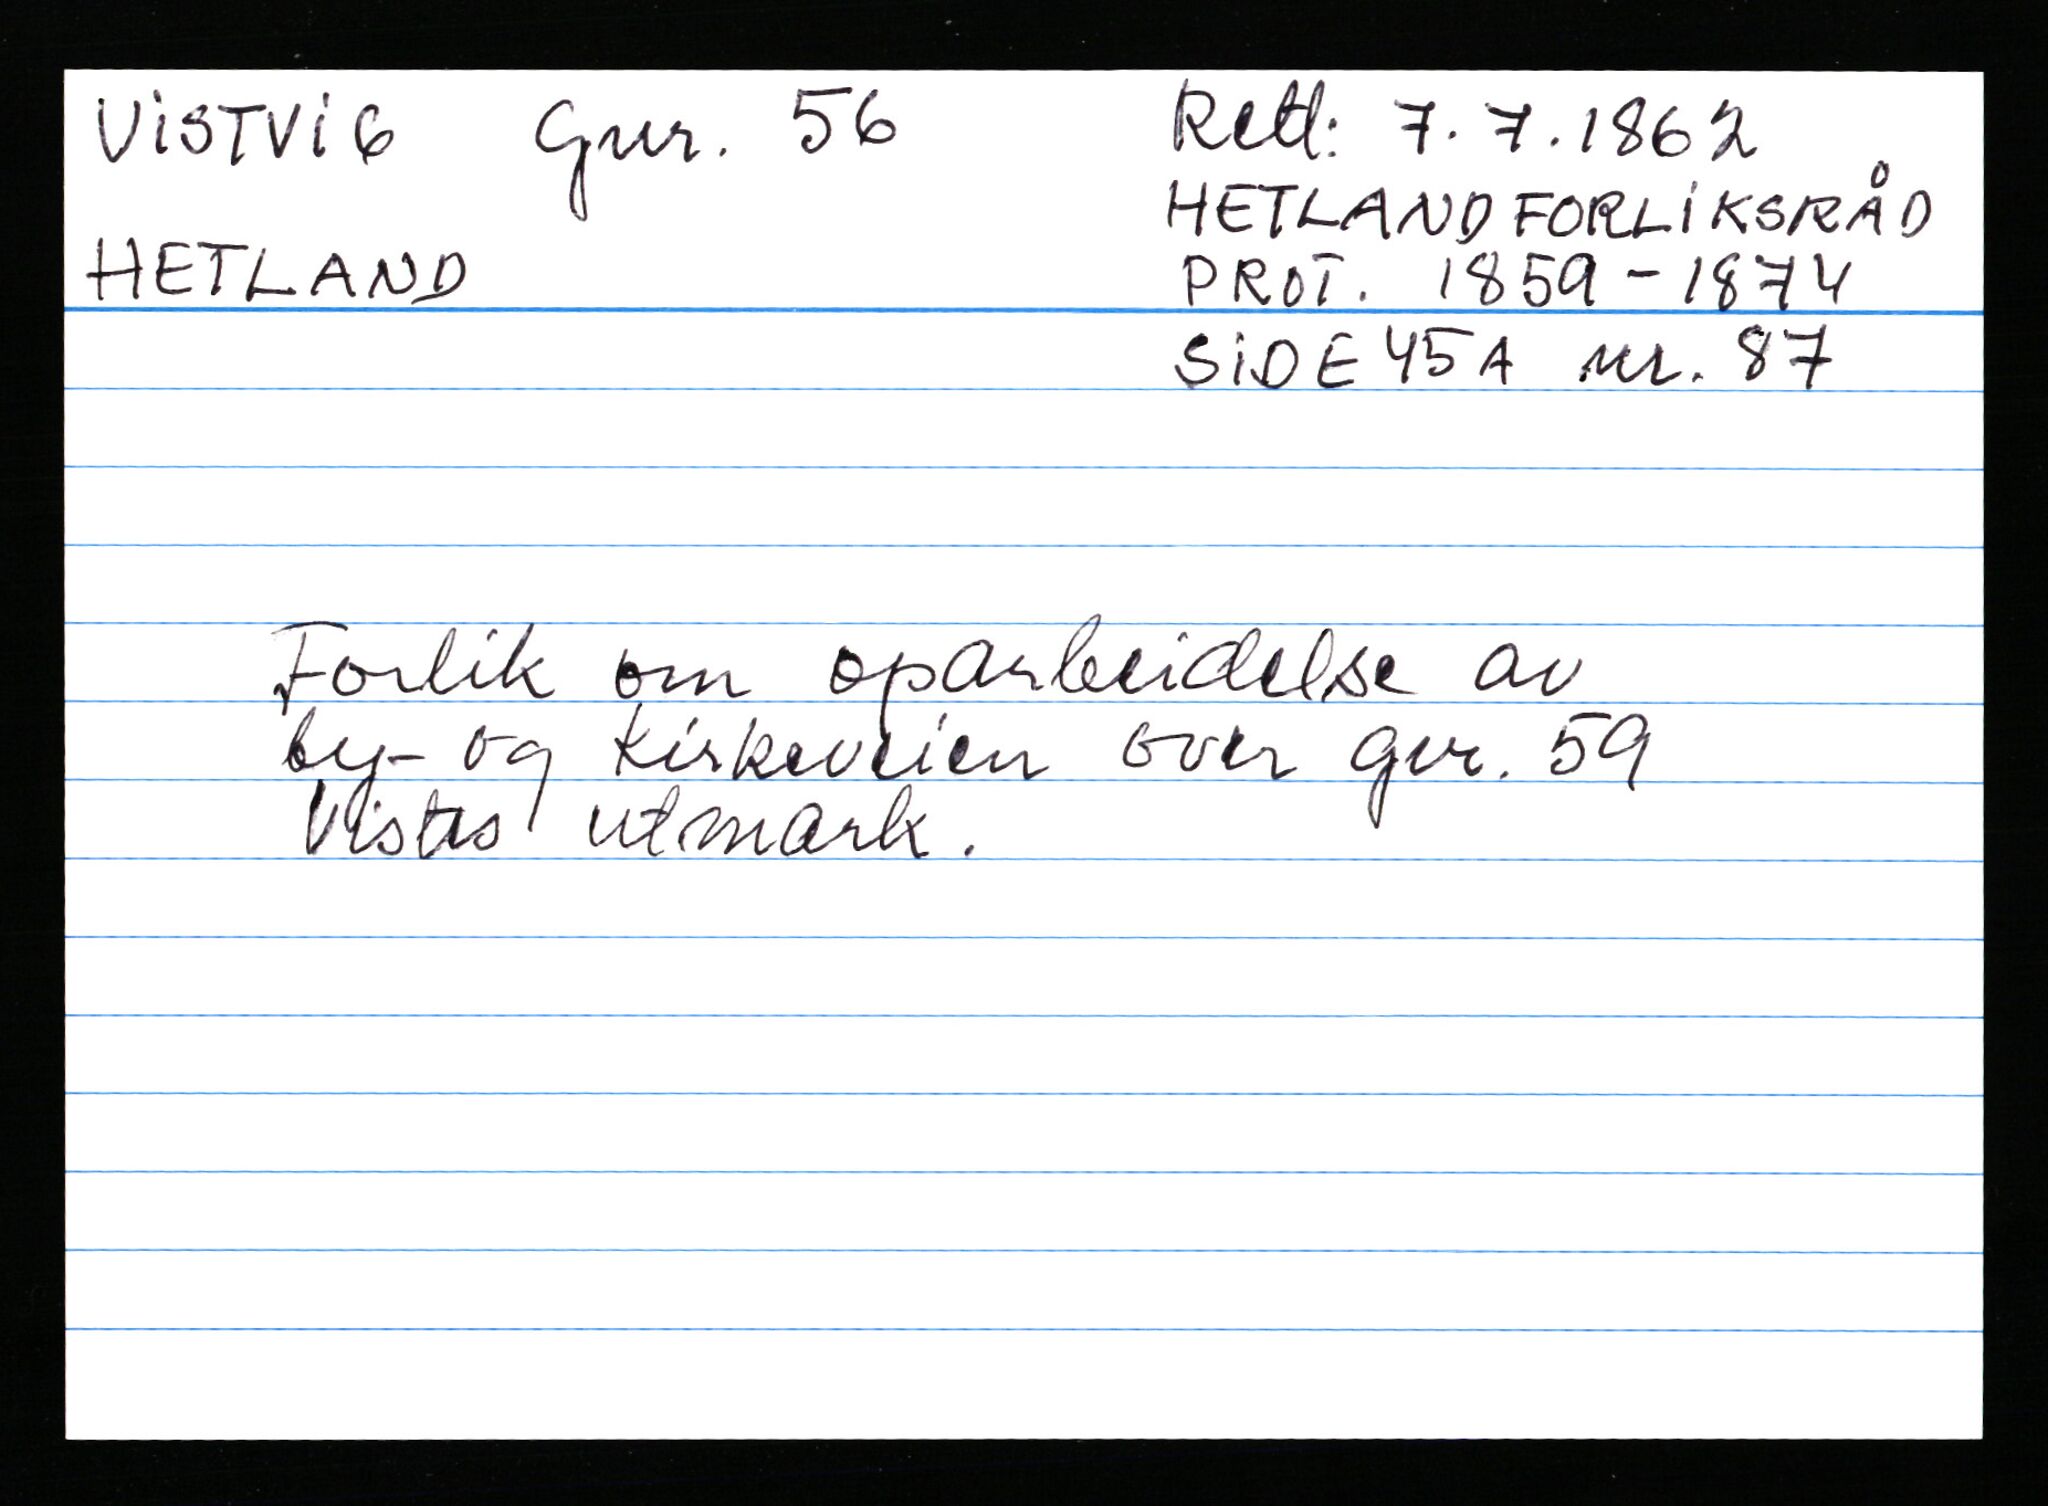 VISTVIG Gnr. 56
HETLAND
Retl: 7.7.1862
HETLAND FORLIKSRÅD
PROT. 1859-1874
SIDE 45A nr. 87
Forlik om oparbeidelse av
by- og kirkeveien over gnr. 59
Vistes utmark.